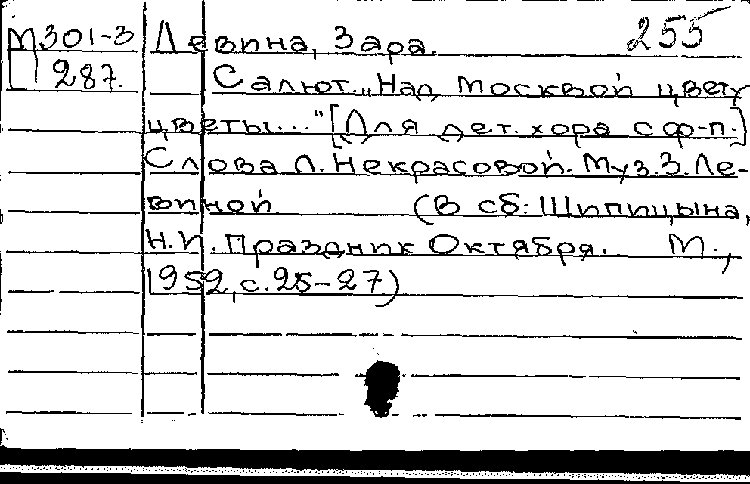 М301-3 Левина, Зара. 255
287. Салют. „Над Москвой цвету
цветы..." [Для дет. хора с ф-п.]
Слова Л. Некрасовой. Муз. З. Ле-
виной (В сб: Шипицына,
Н.И. Праздник Октября. М.,
1952, с. 25-27)